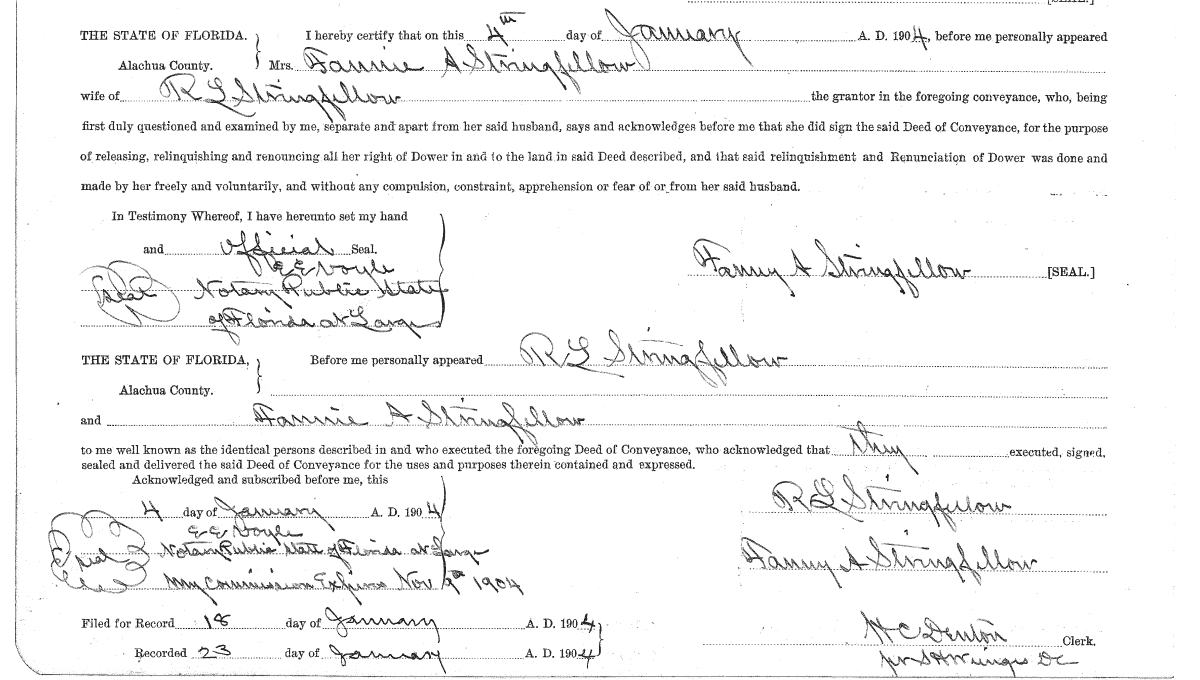 [SEAL.]
THE STATE OF FLORIDA. I hereby certify that on this 4th day of January A. D. 1904, before me personally appeared
Alachua County. Mrs. Fannie A Stringfellow
wife of R L Stringfellow the grantor in the foregoing conveyance, who, being
first duly questioned and examined by me, separate and apart from her said husband, says and acknowledges before me that she did sign the said Deed of Conveyance, for the purpose
of releasing, relinquishing and renouncing all her right of Dower in and to the land in said Deed described, and that said relinquishment and Renunciation of Dower was done and
made by her freely and voluntarily, and without any compulsion, constraint, apprehension or fear of or from her said husband.
In Testimony Whereof, I have hereunto set my hand
and official Seal.
E E Voyle
Fanny A Stringfellow [SEAL.]
Seal Notary Public State
of Florida at Large
THE STATE OF FLORIDA, Before me personally appeared R L Stringfellow
Alachua County.
and Fannie A Stringfellow
to me well known as the identical persons described in and who executed the foregoing Deed of Conveyance, who acknowledged that they executed, signed,
sealed and delivered the said Deed of Conveyance for the uses and purposes therein contained and expressed.
Acknowledged and subscribed before me, this
4 day of January A. D. 1904
R L Stringfellow
E E Voyle
Seal Notary Public State of Florida at Large
Fanny A Stringfellow
My Commission Expires Nov 9th 1904
Filed for Record 18 day of January A. D. 1904
H C Denton Clerk.
Recorded 23 day of January A. D. 1904
per S H Wienges DC